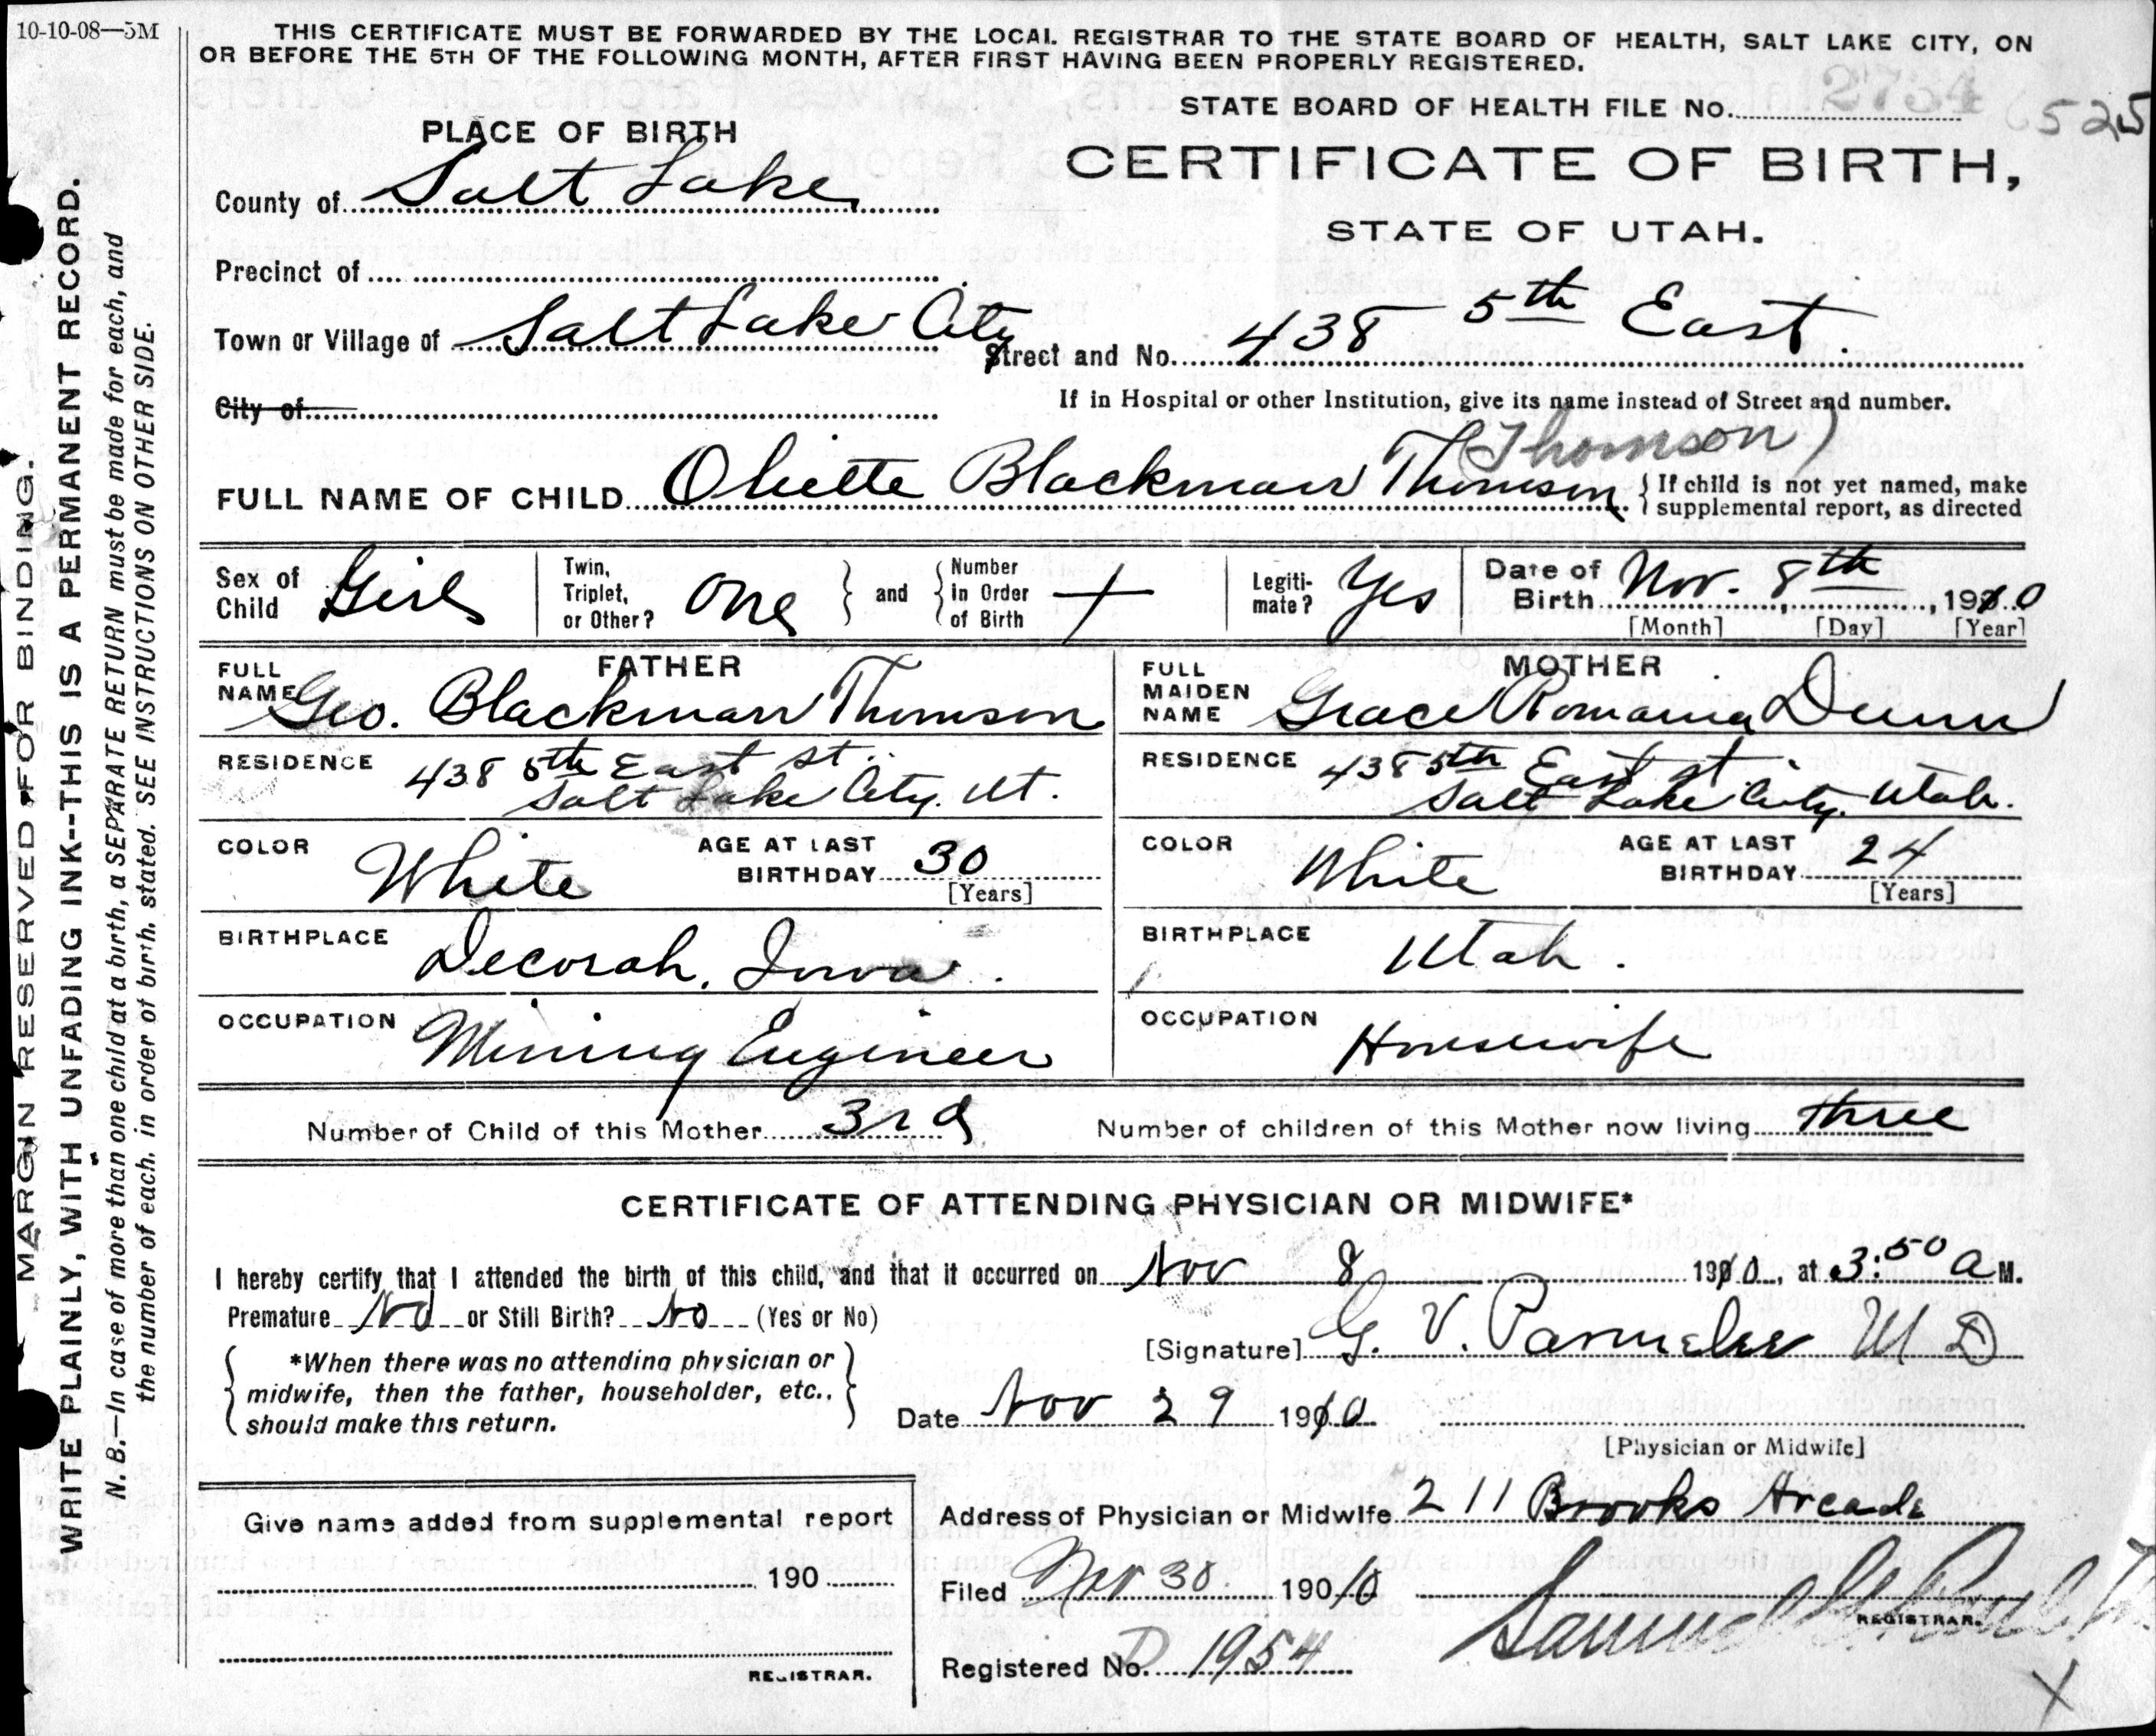 10-10-08—5M
THIS CERTIFICATE MUST BE FORWARDED BY THE LOCAL REGISTRAR TO THE STATE BOARD OF HEALTH, SALT LAKE CITY, ON
OR BEFORE THE 5TH OF THE FOLLOWING MONTH, AFTER FIRST HAVING BEEN PROPERLY REGISTERED.
STATE BOARD OF HEALTH FILE No. 2734 525
PLACE OF BIRTH
CERTIFICATE OF BIRTH,
STATE OF UTAH.
County of Salt Lake
Precinct of
Town or Village of Salt Lake City
Street and No. 438 5th East
City of
If in Hospital or other Institution, give its name instead of Street and number.
(Thomson)
FULL NAME OF CHILD Oliette Blackman Thomson
If child is not yet named, make
supplemental report, as directed
Sex of Child Girl
Twin, Triplet, or Other? One and Number in Order of Birth +
Legitimate? Yes
Date of Birth Nov. 8th, 1910
[Month] [Day] [Year]
FATHER
FULL NAME Geo. Blackman Thomson
RESIDENCE 438 5th East St.
Salt Lake City. Ut.
COLOR White
AGE AT LAST BIRTHDAY 30
[Years]
BIRTHPLACE Decorah, Iowa.
OCCUPATION Mining Engineer
MOTHER
FULL MAIDEN NAME Grace Romania Dunn
RESIDENCE 438 5th East St
Salt Lake City. Utah.
COLOR White
AGE AT LAST BIRTHDAY 24
[Years]
BIRTHPLACE Utah.
OCCUPATION Housewife
Number of Child of this Mother 3rd
Number of children of this Mother now living three
CERTIFICATE OF ATTENDING PHYSICIAN OR MIDWIFE*
I hereby certify that I attended the birth of this child, and that it occurred on Nov 8 1910, at 3:50 A M.
Premature No or Still Birth? No (Yes or No)
[Signature] G. V. Parmelee M D
*When there was no attending physician or
midwife, then the father, householder, etc.,
should make this return.
Date Nov 29 1910
[Physician or Midwife]
Give name added from supplemental report
190
REGISTRAR.
Address of Physician or Midwife 211 Brooks Arcade
Filed Nov 30 190 10
Samuel G Paul
REGISTRAR.
Registered No. D 1954
MARGIN RESERVED FOR BINDING.
WRITE PLAINLY, WITH UNFADING INK--THIS IS A PERMANENT RECORD.
N. B.—In case of more than one child at a birth, a SEPARATE RETURN must be made for each, and
the number of each, in order of birth, stated. SEE INSTRUCTIONS ON OTHER SIDE.